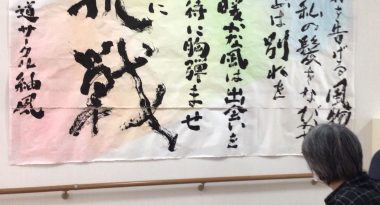 を告げる風
私の髪をなび
は別れを
暖かな風は出会いを
待に胸弾ませ
に
挑戦
道サークル紬風